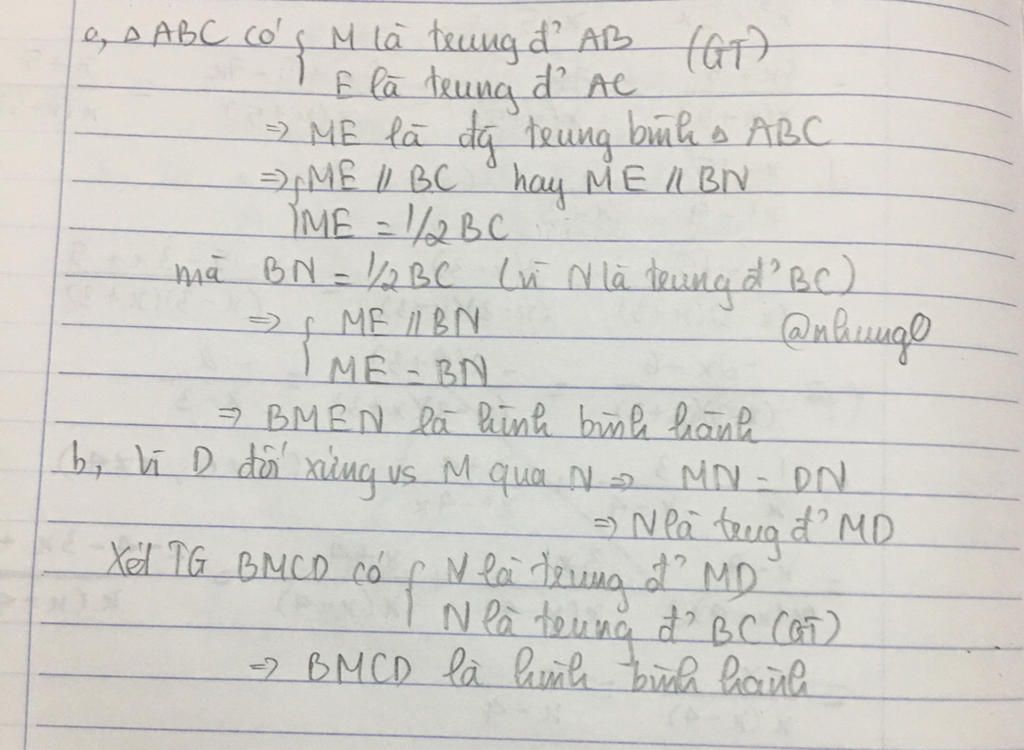 a, △ABC có { M là trung đ' AB (GT)
E là trung đ' AC
=> ME là đg trung bình △ ABC
=> { ME // BC hay ME // BN
ME = 1/2 BC
mà BN = 1/2 BC (vì N là trung đ' BC)
=> { ME // BN @nhung0
ME = BN
=> BMEN là hình bình hành
b, Vì D đối xứng vs M qua N => MN = DN
=> N là trug đ' MD
Xét TG BMCD có { N là trung đ' MD
N là trung đ' BC (GT)
=> BMCD là hình bình hành